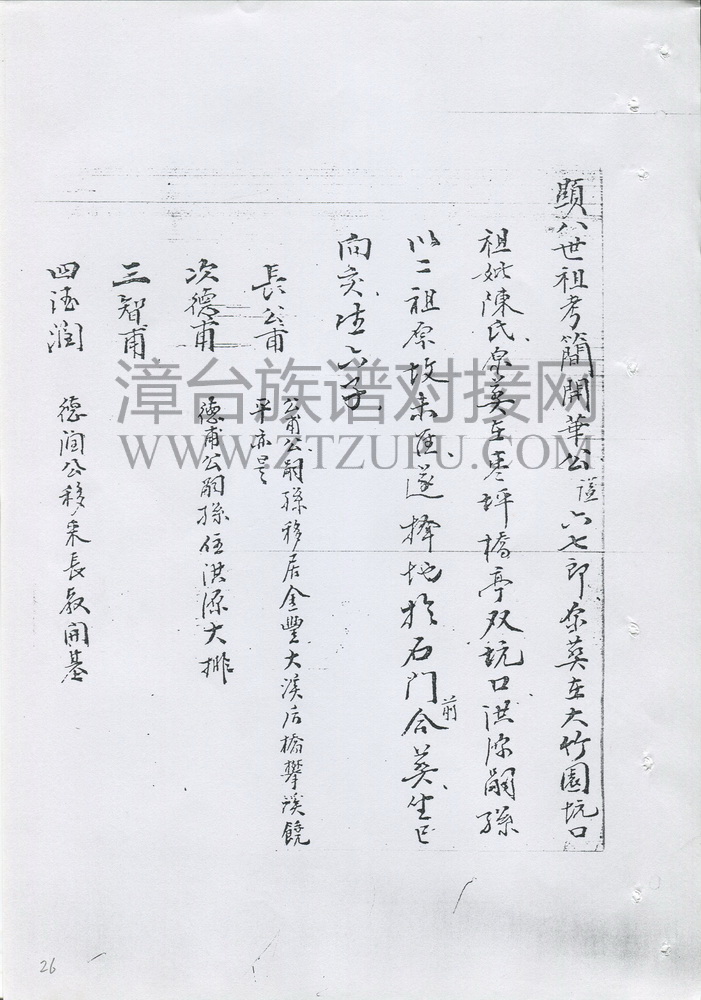 顯八世祖考簡開華公諡六七郎原葬在大竹園坑口
祖妣陳氏原葬在枣坪橋亭双坑口洪源嗣孫
以二祖原坟未臧遂择地於石門前合葬坐巳
向亥生六子
長公甫
公甫公嗣孫移居金豐大溪后橋攀溪饒
平亦是
次德甫
德甫公嗣孫住洪源大排
三智甫
四德潤
德润公移来長教開基
漳台族谱对接网
WWW.ZTZUPU.COM
26